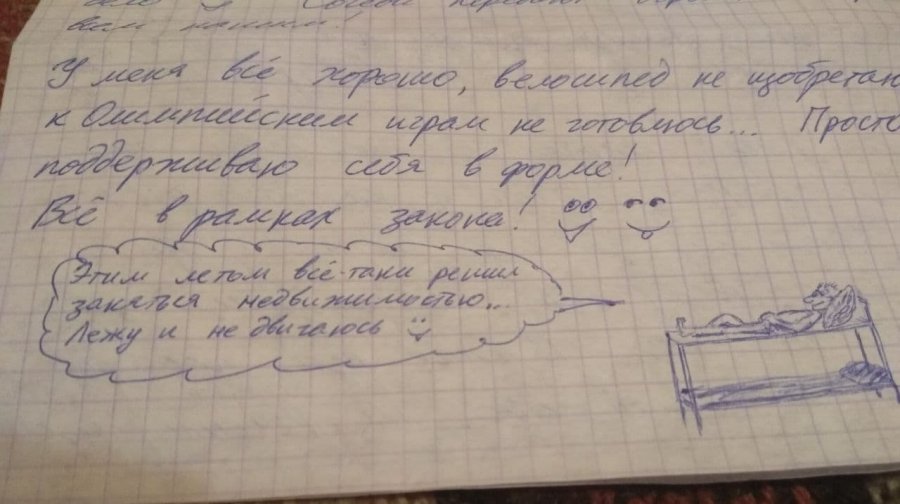 У меня всё хорошо, велосипед не изобретаю
к Олимпийским играм не готовлюсь... Просто
поддерживаю себя в форме!
Всё в рамках закона!
Этим летом всё-таки решил
заняться недвижимостью...
Лежу и не двигаюсь